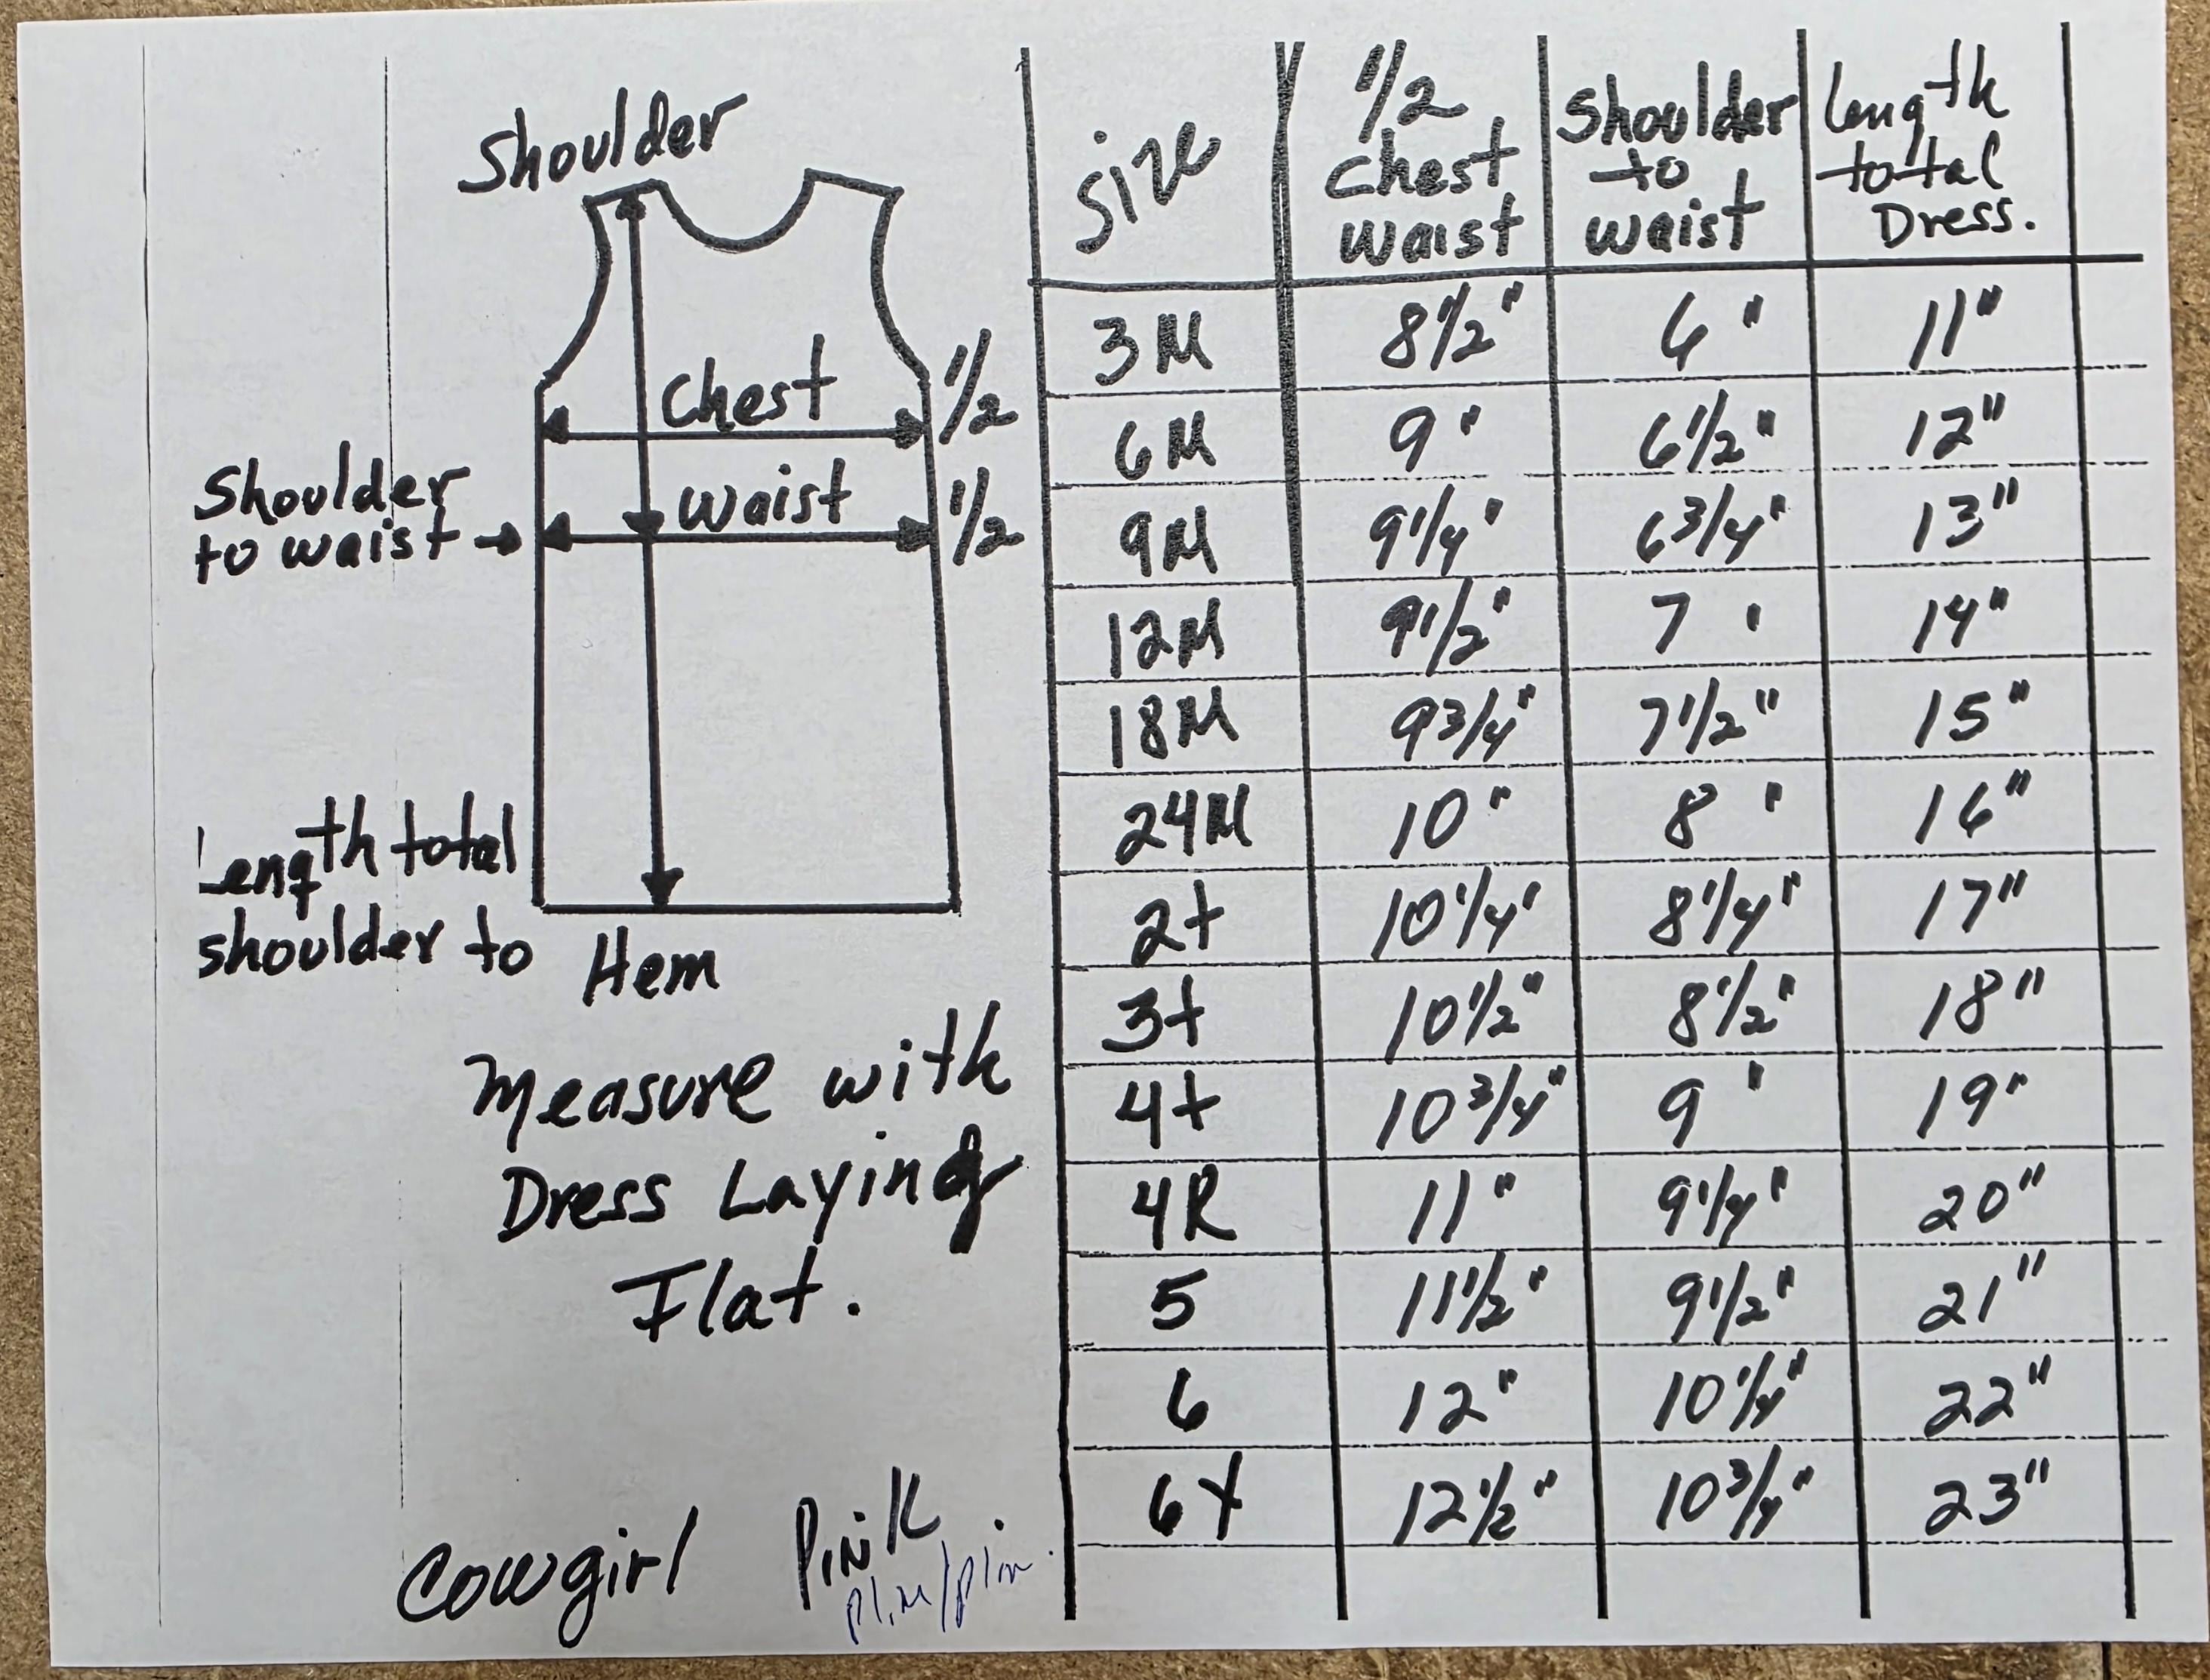 Shoulder
Chest 1/2
Shoulder
to waist → waist 1/2
Length total
shoulder to Hem
Measure with
Dress Laying
Flat.
Cowgirl Pink
Size 1/2 Chest waist Shoulder to waist Length total Dress.
3M 8 1/2" 6" 11"
6M 9" 6 1/2" 12"
9M 9 1/4" 6 3/4" 13"
12M 9 1/2" 7 ' 14"
18M 9 3/4" 7 1/2" 15"
24M 10" 8 " 16"
2t 10 1/4" 8 1/4" 17"
3t 10 1/2" 8 1/2" 18"
4t 10 3/4" 9 " 19"
4R 11" 9 1/4" 20"
5 11 1/2" 9 1/2" 21"
6 12" 10 1/4" 22"
6X 12 1/2" 10 3/4" 23"